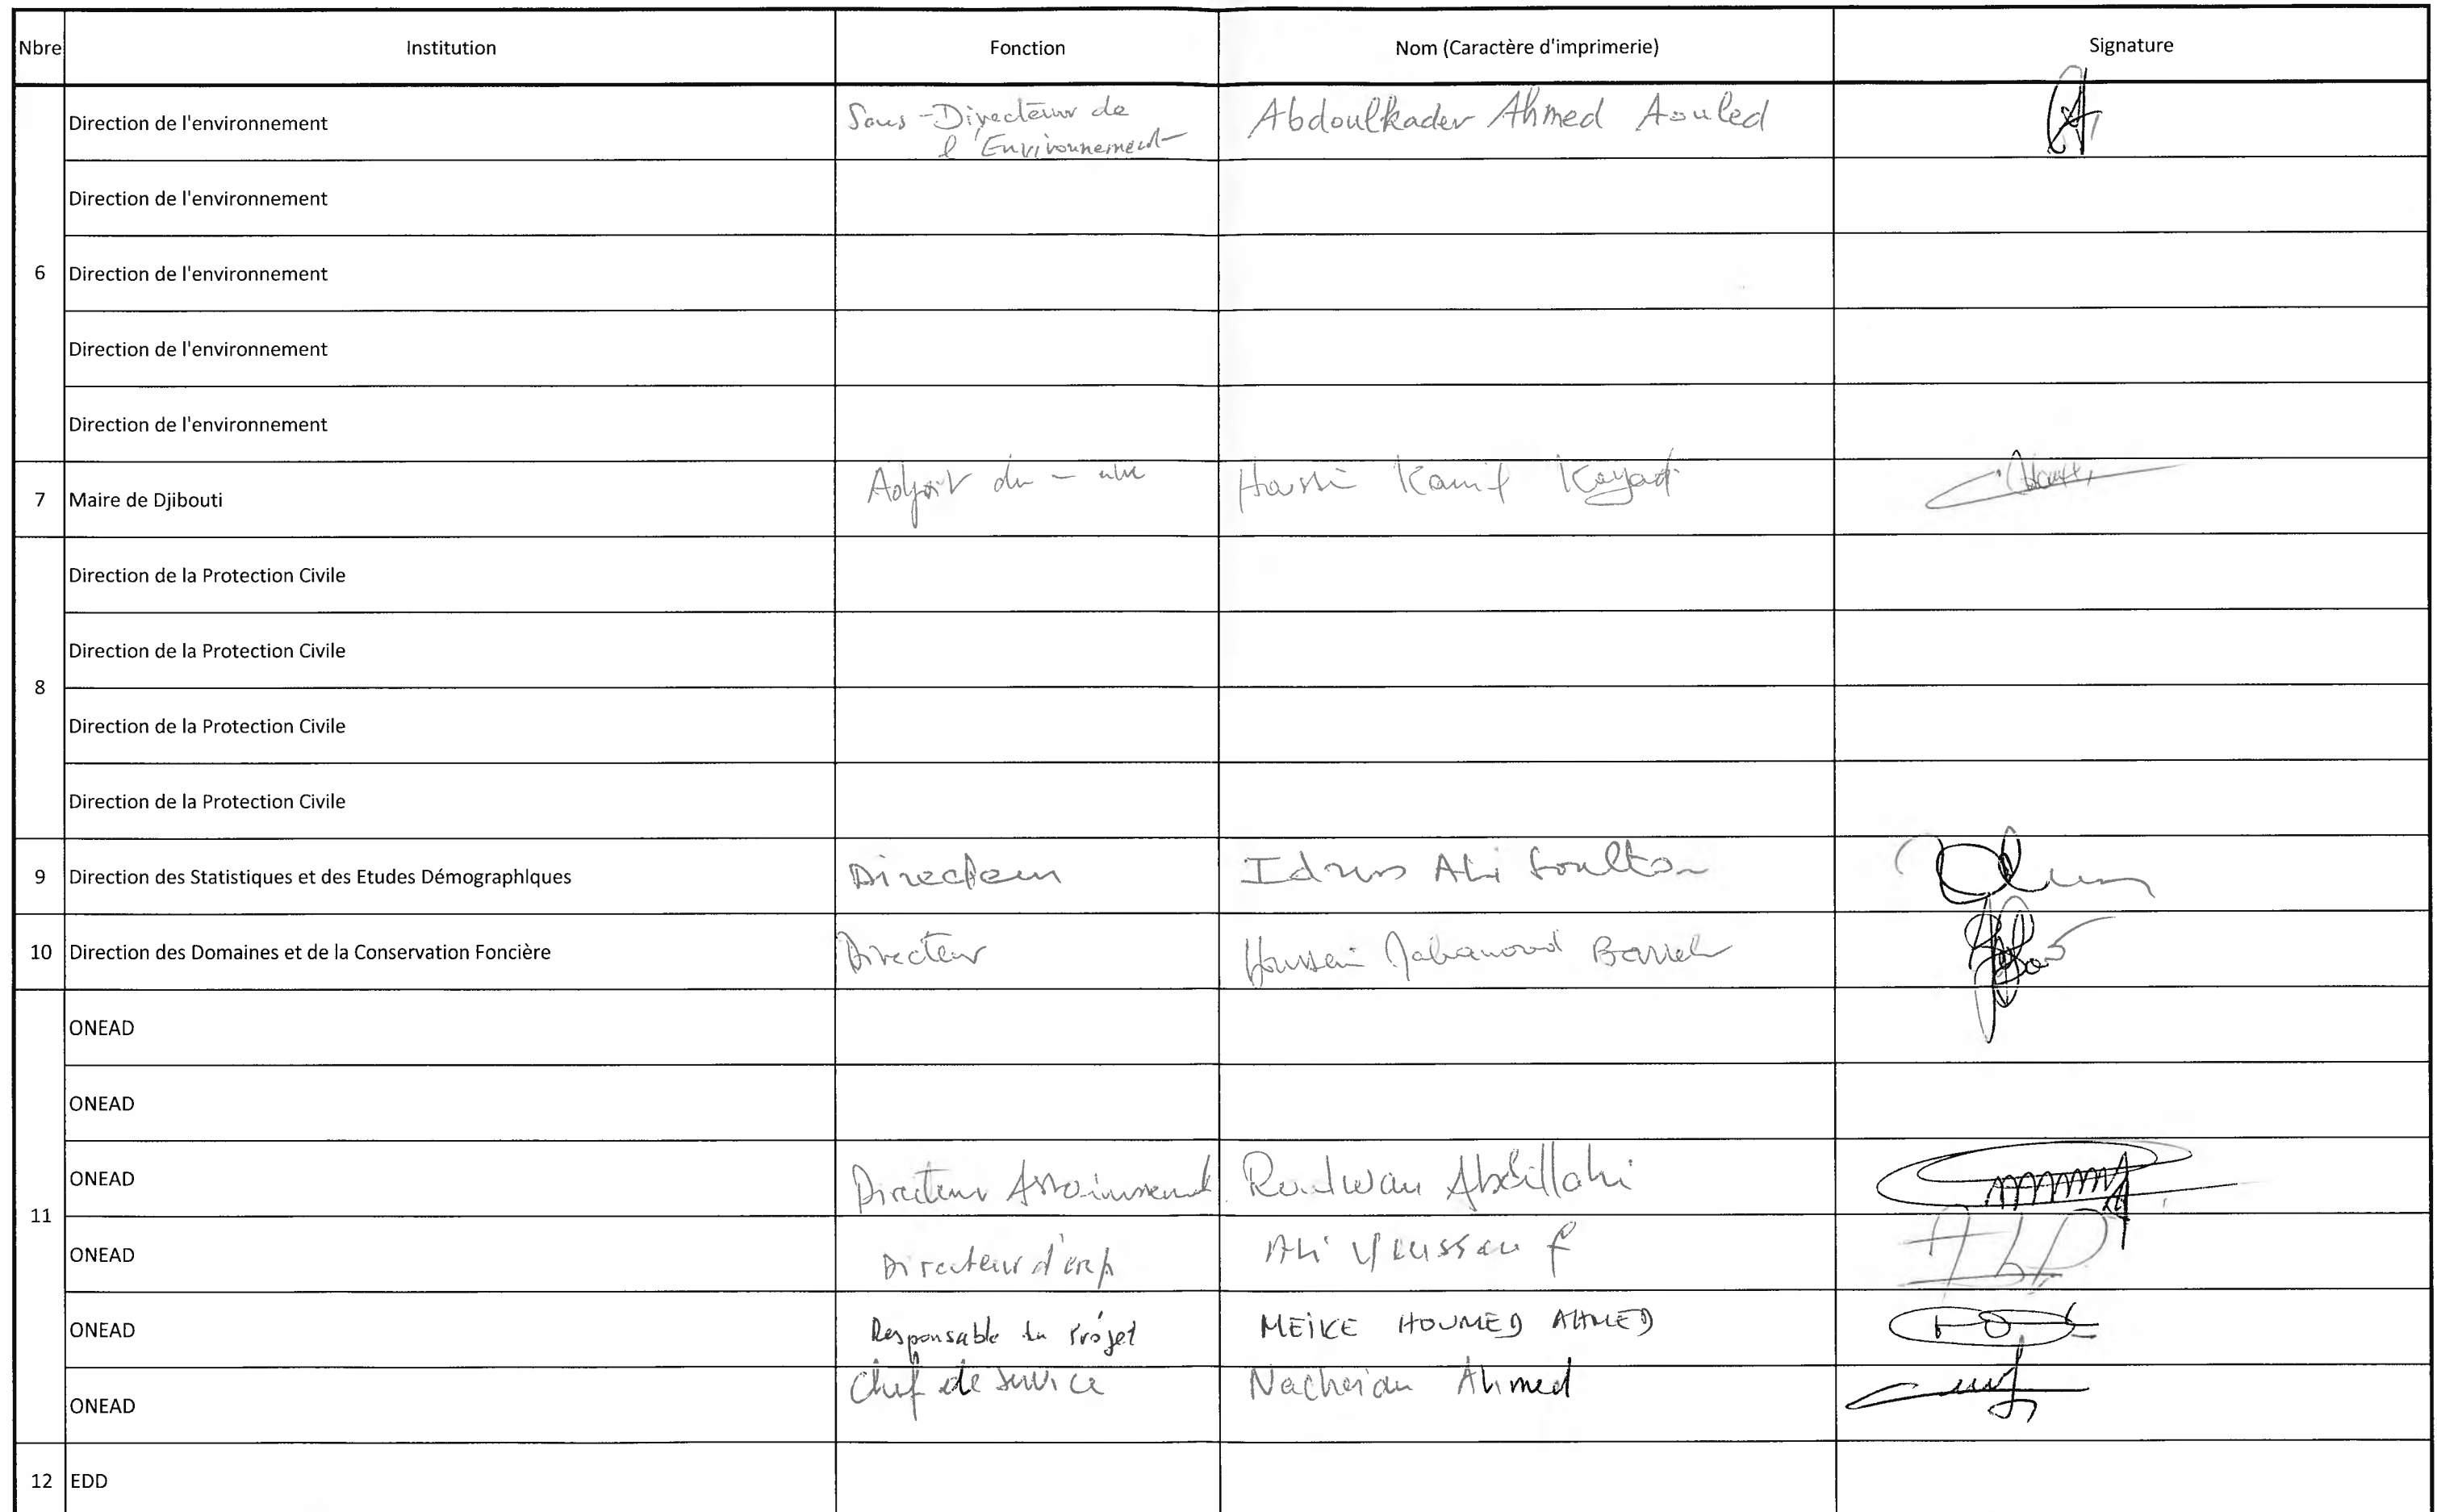 Nbre Institution Fonction Nom (Caractère d'imprimerie) Signature
Direction de l'environnement Sous-Directeur de Abdoulkader Ahmed Aouled
l'Environnement
Direction de l'environnement
6 Direction de l'environnement
Direction de l'environnement
Direction de l'environnement
7 Maire de Djibouti Kamil
Direction de la Protection Civile
Direction de la Protection Civile
8
Direction de la Protection Civile
Direction de la Protection Civile
9 Direction des Statistiques et des Etudes Démographiques Directeur Ali
10 Direction des Domaines et de la Conservation Foncière Directeur Houssein Mahamoud Barreh
ONEAD
ONEAD
ONEAD Directeur Assainissement Radwan Abdillahi
11
ONEAD Directeur d'exp Ali Youssouf
ONEAD Responsable du Projet MEIKE HOUMED AHMED
ONEAD Chef de service Ahmed
12 EDD